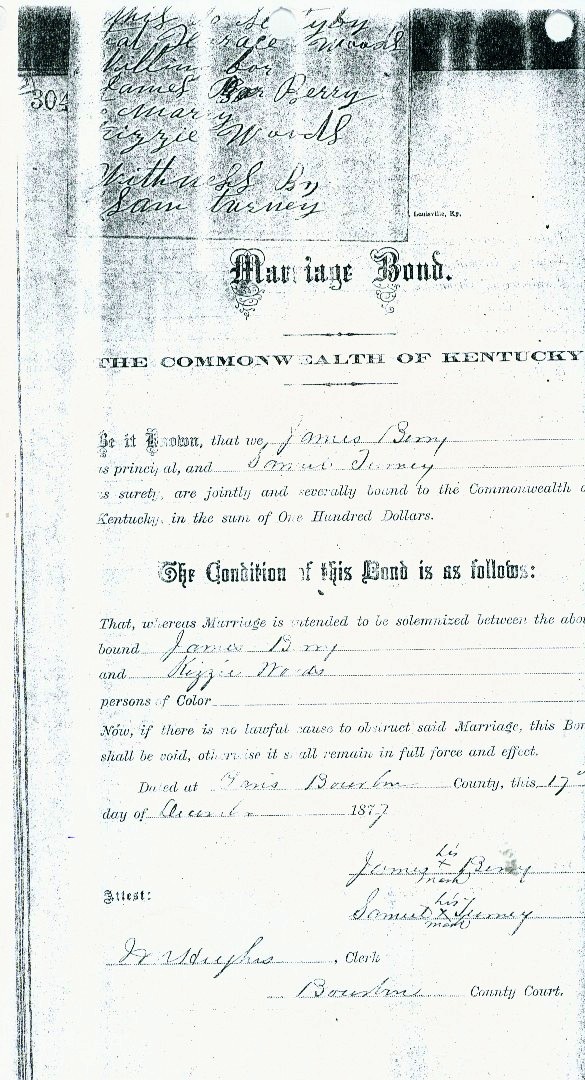 this
Horace Woods
James Ber Berry
Marry
Kizzie Woods
Withness By
Sam turney
304
Louisville, Ky.
Marriage Bond.
THE COMMONWEALTH OF KENTUCKY
Be it Known, that we, James Berry
as principal, and Samuel Turney
as surety, are jointly and severally bound to the Commonwealth o
Kentucky, in the sum of One Hundred Dollars.
The Condition of this Bond is as follows:
That, whereas Marriage is intended to be solemnized between the abov
bound James Berry
and Kizzie Woods
persons of Color
Now, if there is no lawful cause to obstruct said Marriage, this Bon
shall be void, otherwise it shall remain in full force and effect.
Dated at Paris Bourbon County, this 17
day of December 1877
his
James x Berry
mark
Attest:
his
Samuel x Turney
mark
Hughes, Clerk
Bourbon County Court.